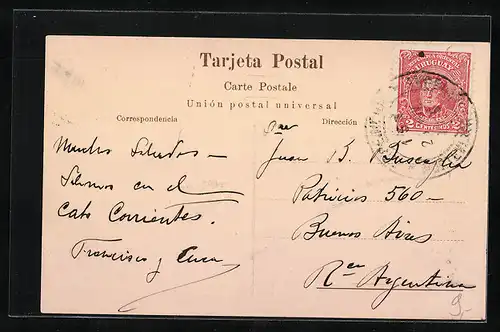 Tarjeta Postal
Carte Postale
Unión postal universal
Correspondencia
Dirección
URUGUAY
2 CENTESIMOS 2
Muchos Saludos –
Salimos en el
Cabo Corrientes.
Francisco y Cuca
Juan B. Buscaglia
Patricios 560 –
Buenos Aires
Rca Argentina
9.-